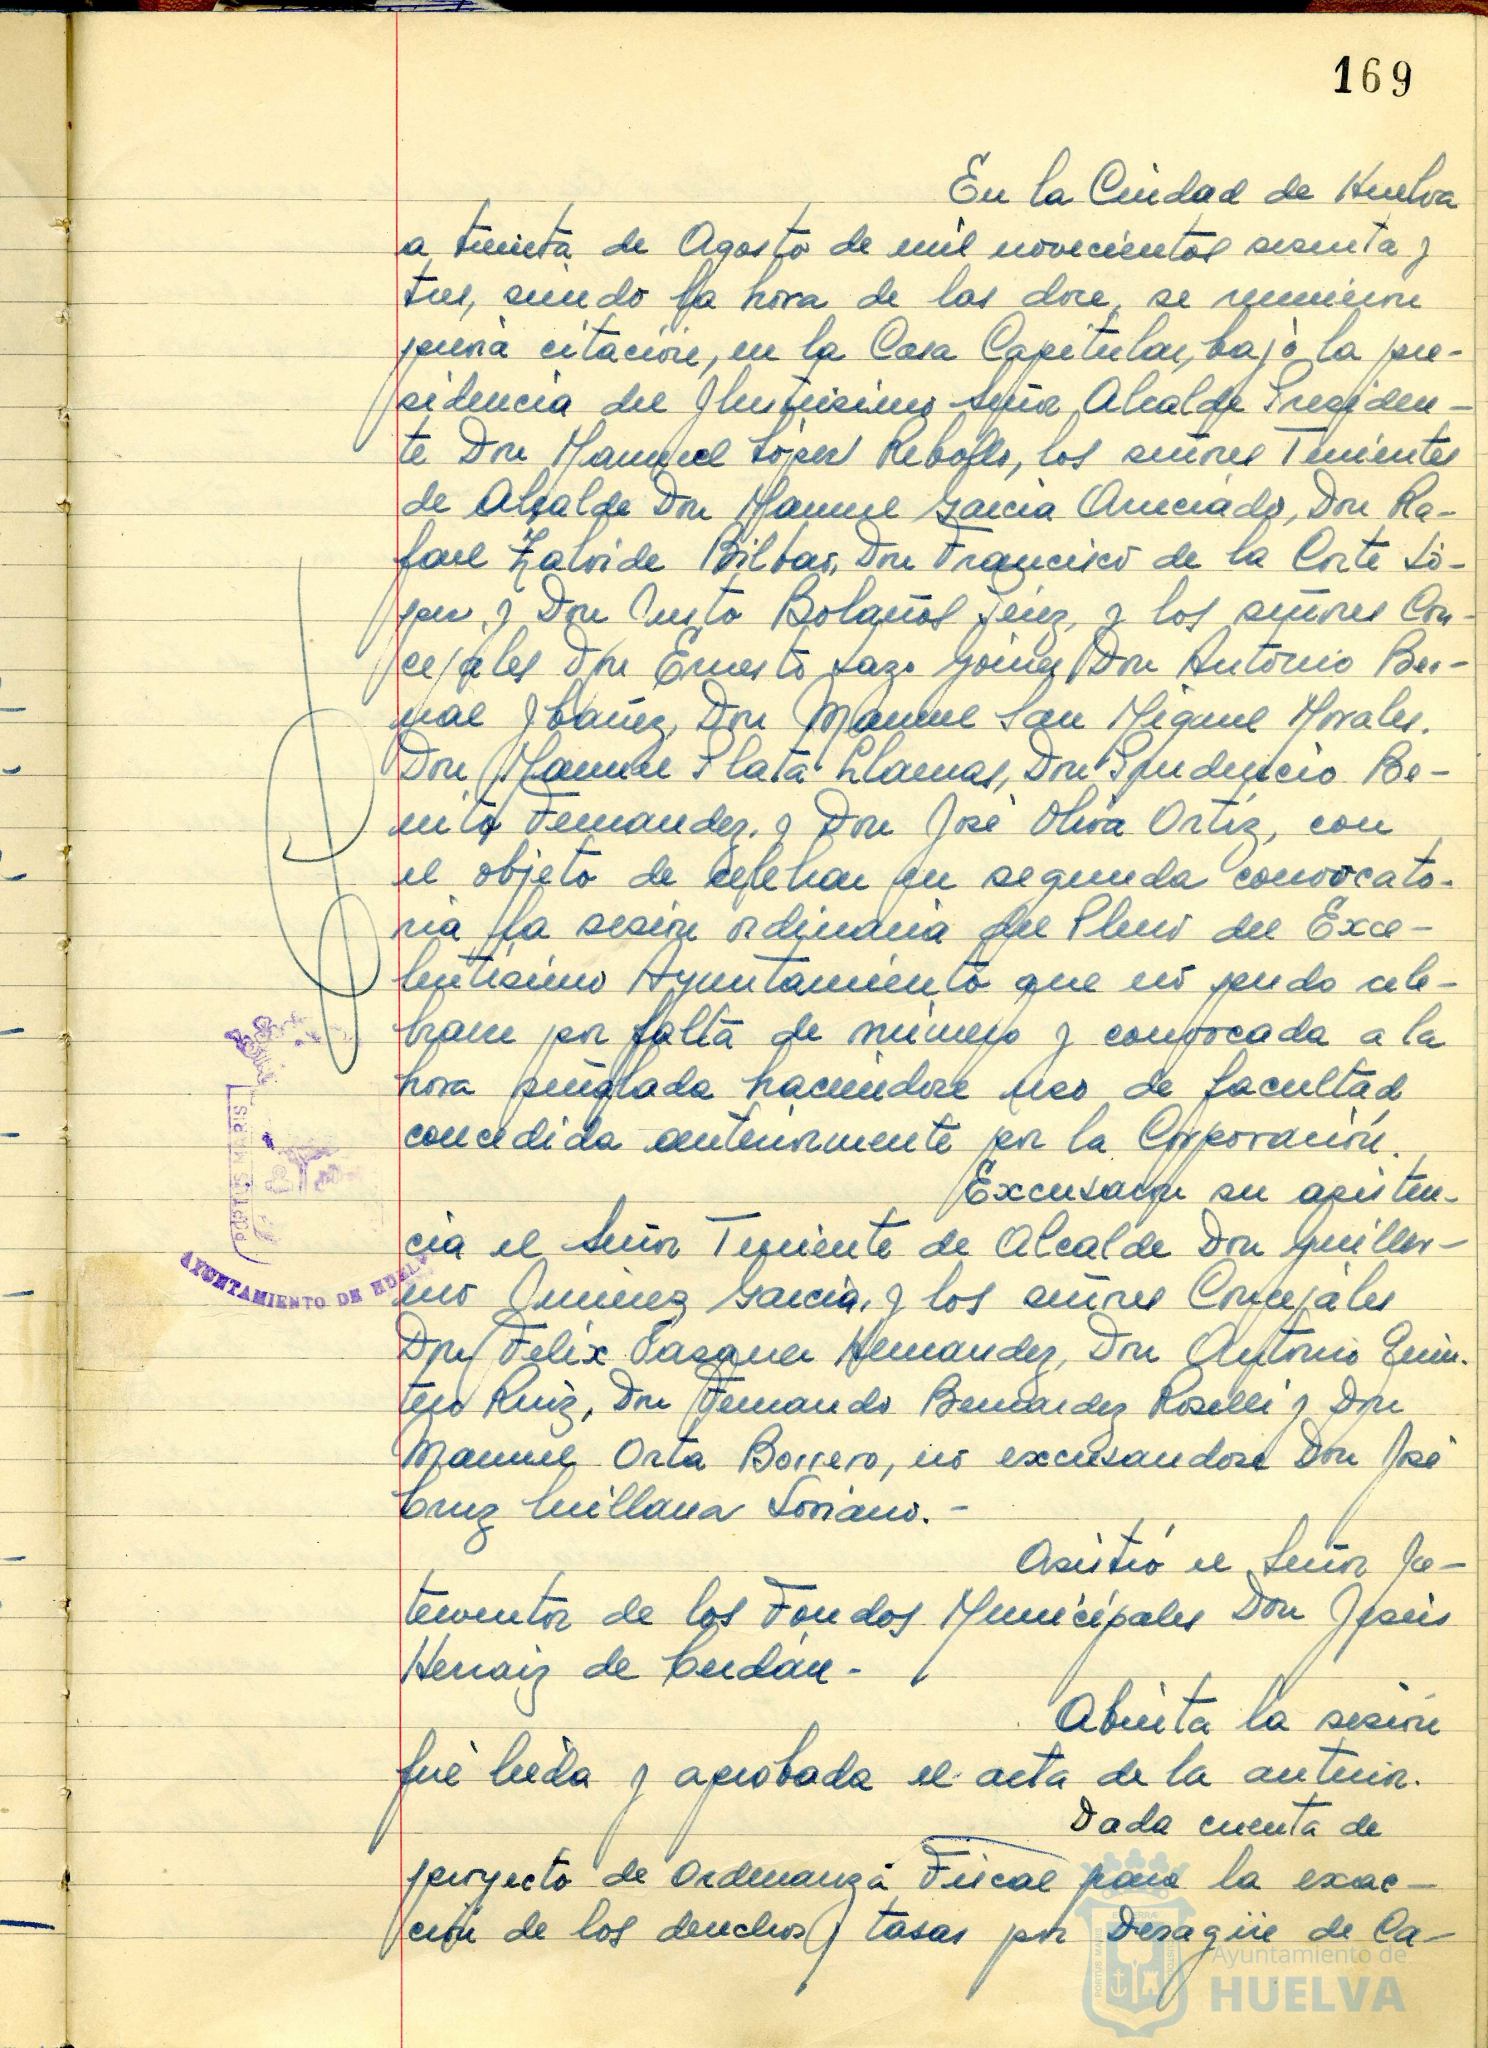 169
En la Ciudad de Huelva
a treinta de Agosto de mil novecientos sesenta y
tres, siendo la hora de las doce, se reunieron
previa citación, en la Casa Capitular, bajo la pre-
sidencia del Ilustrisimo Señor Alcalde Presiden-
te Don Manuel López Rebollo, los señores Tenientes
de Alcalde Don Manuel Garcia Anciado, Don Ra-
fael Zalvide Bilbao, Don Francisco de la Corte Ló-
pez, y Don Justo Bolaños Pérez, y los señores Con-
cejales Don Ernesto Lazo Gómez, Don Antonio Ber-
nal Ybañez, Don Manuel San Miguel Morales.
Don Manuel Plata Llamas, Don Prudencio Be-
nito Fernandez, y Don José Oliva Ortíz, con
el objeto de celebrar en segunda convocato-
ria la sesión ordinaria del Pleno del Exce-
lentisimo Ayuntamiento que no pudo cele-
brarse por falta de número y convocada a la
hora señalada haciendose uso de facultad
concedida anteriormente por la Corporación.
Excusaron su asisten-
cia el Señor Teniente de Alcalde Don Guiller-
mo Jimenez Garcia, y los señores Concejales
Don Felix Vazquez Hernandez, Don Antonio Quin-
tero Ruiz, Don Fernando Bernardez Roselli y Don
Manuel Orta Borrero, no excusandose Don José
Cruz Millana Soriano.-
Asistió el Señor In-
terventor de los Fondos Municipales Don Jesús
Herraiz de Cerdán-
Abierta la sesión
fué leida y aprobada el acta de la anterior.
Dada cuenta de
proyecto de Ordenanza Fiscal para la exac-
ción de los derechos y tasas por Desagüe de Ca-
PORTUS MARIS
AYUNTAMIENTO DE HUELVA
Ayuntamiento de
HUELVA